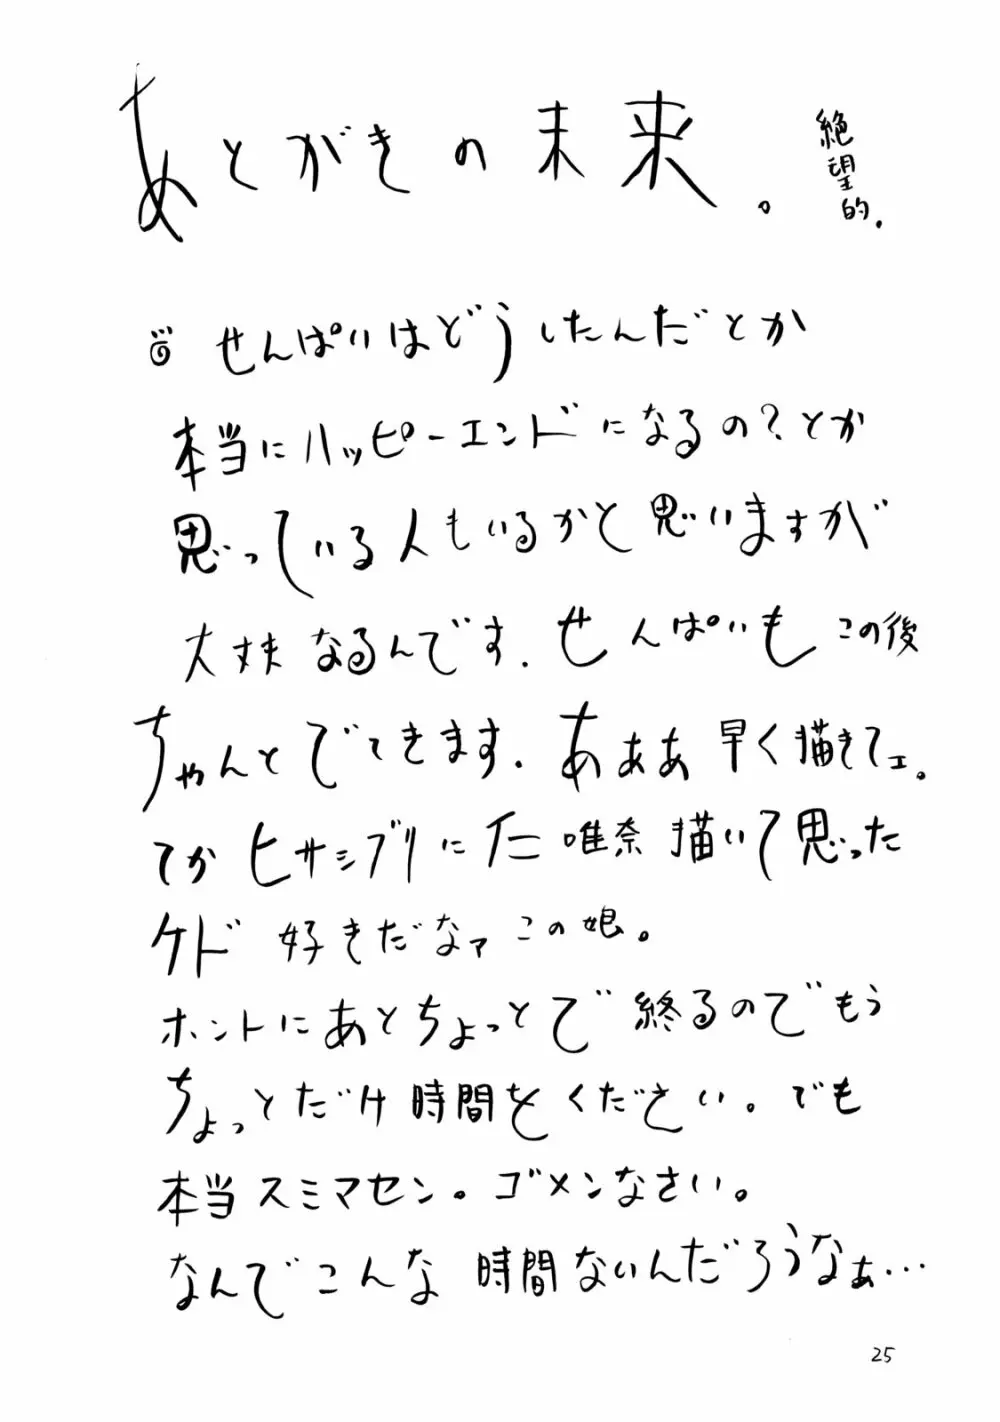 あとがきの未来。
絶望的.
せんぱいはどうしたんだとか
本当にハッピーエンドになるの?とか
思っている人もいるかと思いますが
大丈夫なるんです.せんぱいもこの後
ちゃんとでてきます.あああ早く描きてェ。
てかヒサシブリに仁唯奈描いて思った
ケド 好きだなァこの娘。
ホントにあとちょっとで終るのでもう
ちょっとだけ時間をください。でも
本当スミマセン。ゴメンなさい。
なんでこんな時間ないんだろうなぁ…
25